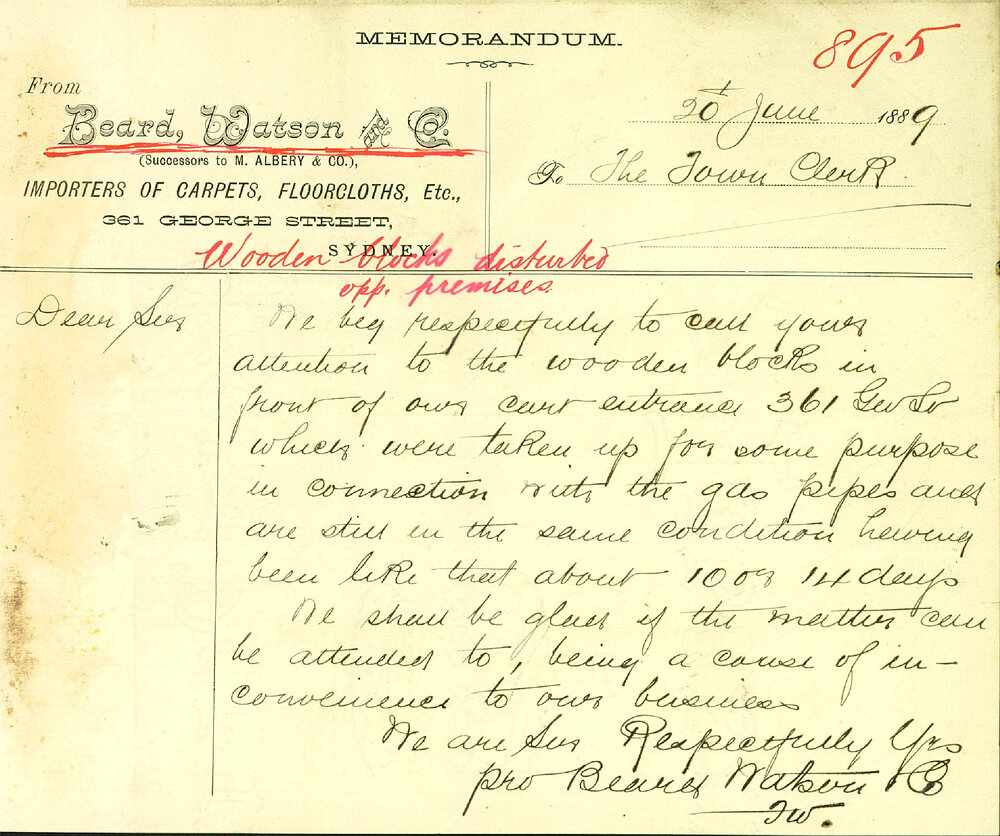 MEMORANDUM.
895
From
Beard, Watson and Co.
(Successors to M. ALBERY & CO.),
IMPORTERS OF CARPETS, FLOORCLOTHS, Etc.,
361 GEORGE STREET,
SYDNEY.
20t June 1889
To The Town Clerk
Wooden blocks disturbed
opp. premises
Dear Sir
We beg respectfully to call your
attention to the wooden blocks in
front of our cart entrance 361 Geo St
which were taken up for some purpose
in connection with the gas pipes and
are still in the same condition having
been like that about 10 or 14 days
We shall be glad if the matter can
be attended to, being a cause of in-
convenience to our business
We are Sir Respectfully Yrs
pro Beard Watson & Co